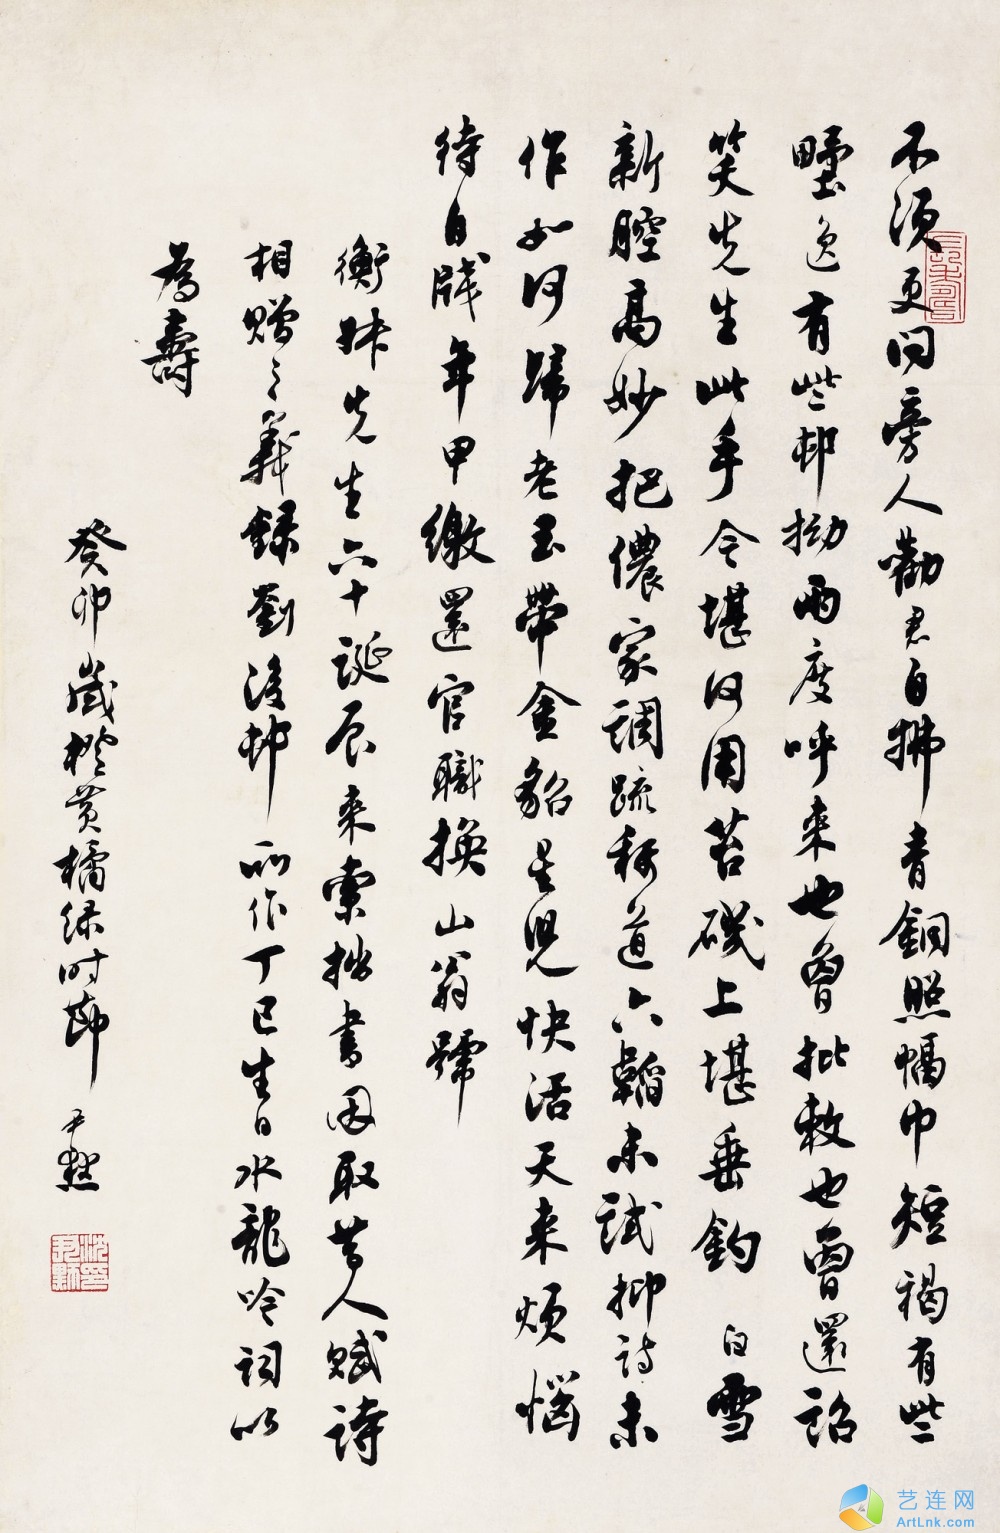 不須更問旁人勸君自拂青銅照幅巾短褐有些
野逸有些邨拗兩度呼來也曾批敕也曾還詔
笑先生此手今堪何用苔磯上堪垂釣 白雪
新腔高妙把儂家調疏稱道六韜未試抑詩未
作如何歸老玉帶金貂星兒快活天來煩惱
待自牋年甲繳還官職換山翁號
衡叔先生六十誕辰來索拙書因取昔人賦詩
相贈之義錄劉後邨所作丁巳生日水龍吟詞以
為壽
癸卯歲橙黃橘綠時節 尹默
沈尹默印
艺连网
ArtLnk.com